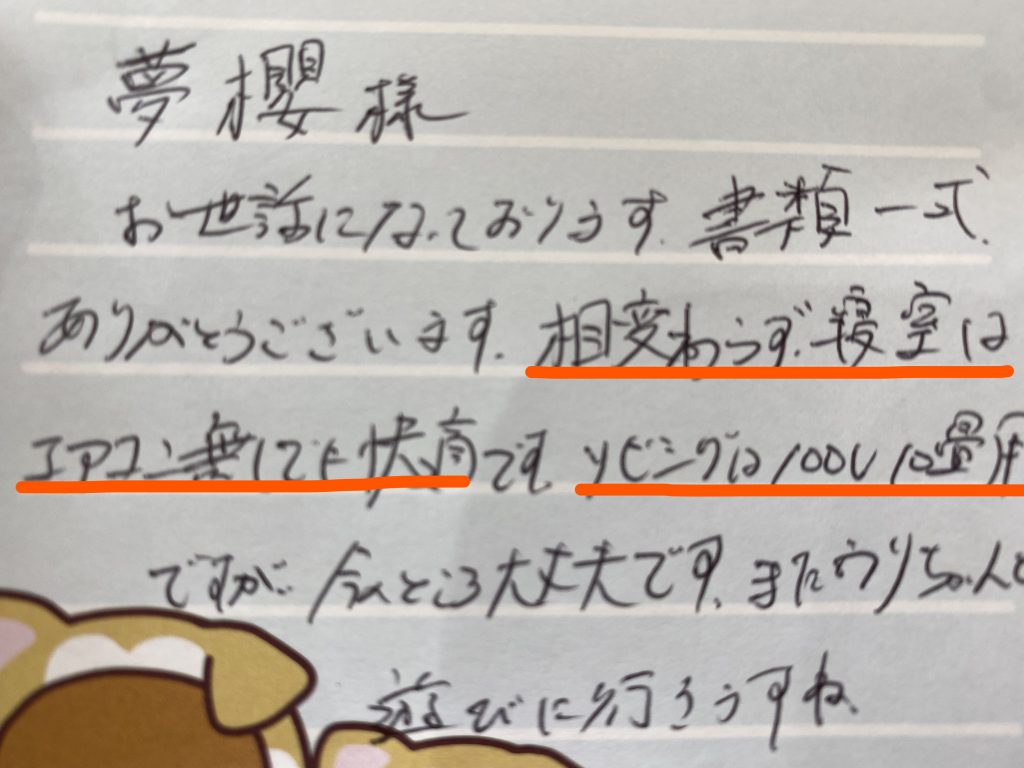 夢櫻様
お世話になっております。書類一式、
ありがとうございます。相変わらず、寝室は
エアコン無しでも快適です。リビングは100V10畳用
ですが、今んところ大丈夫です。またウリちゃんと
遊びに行きますね。